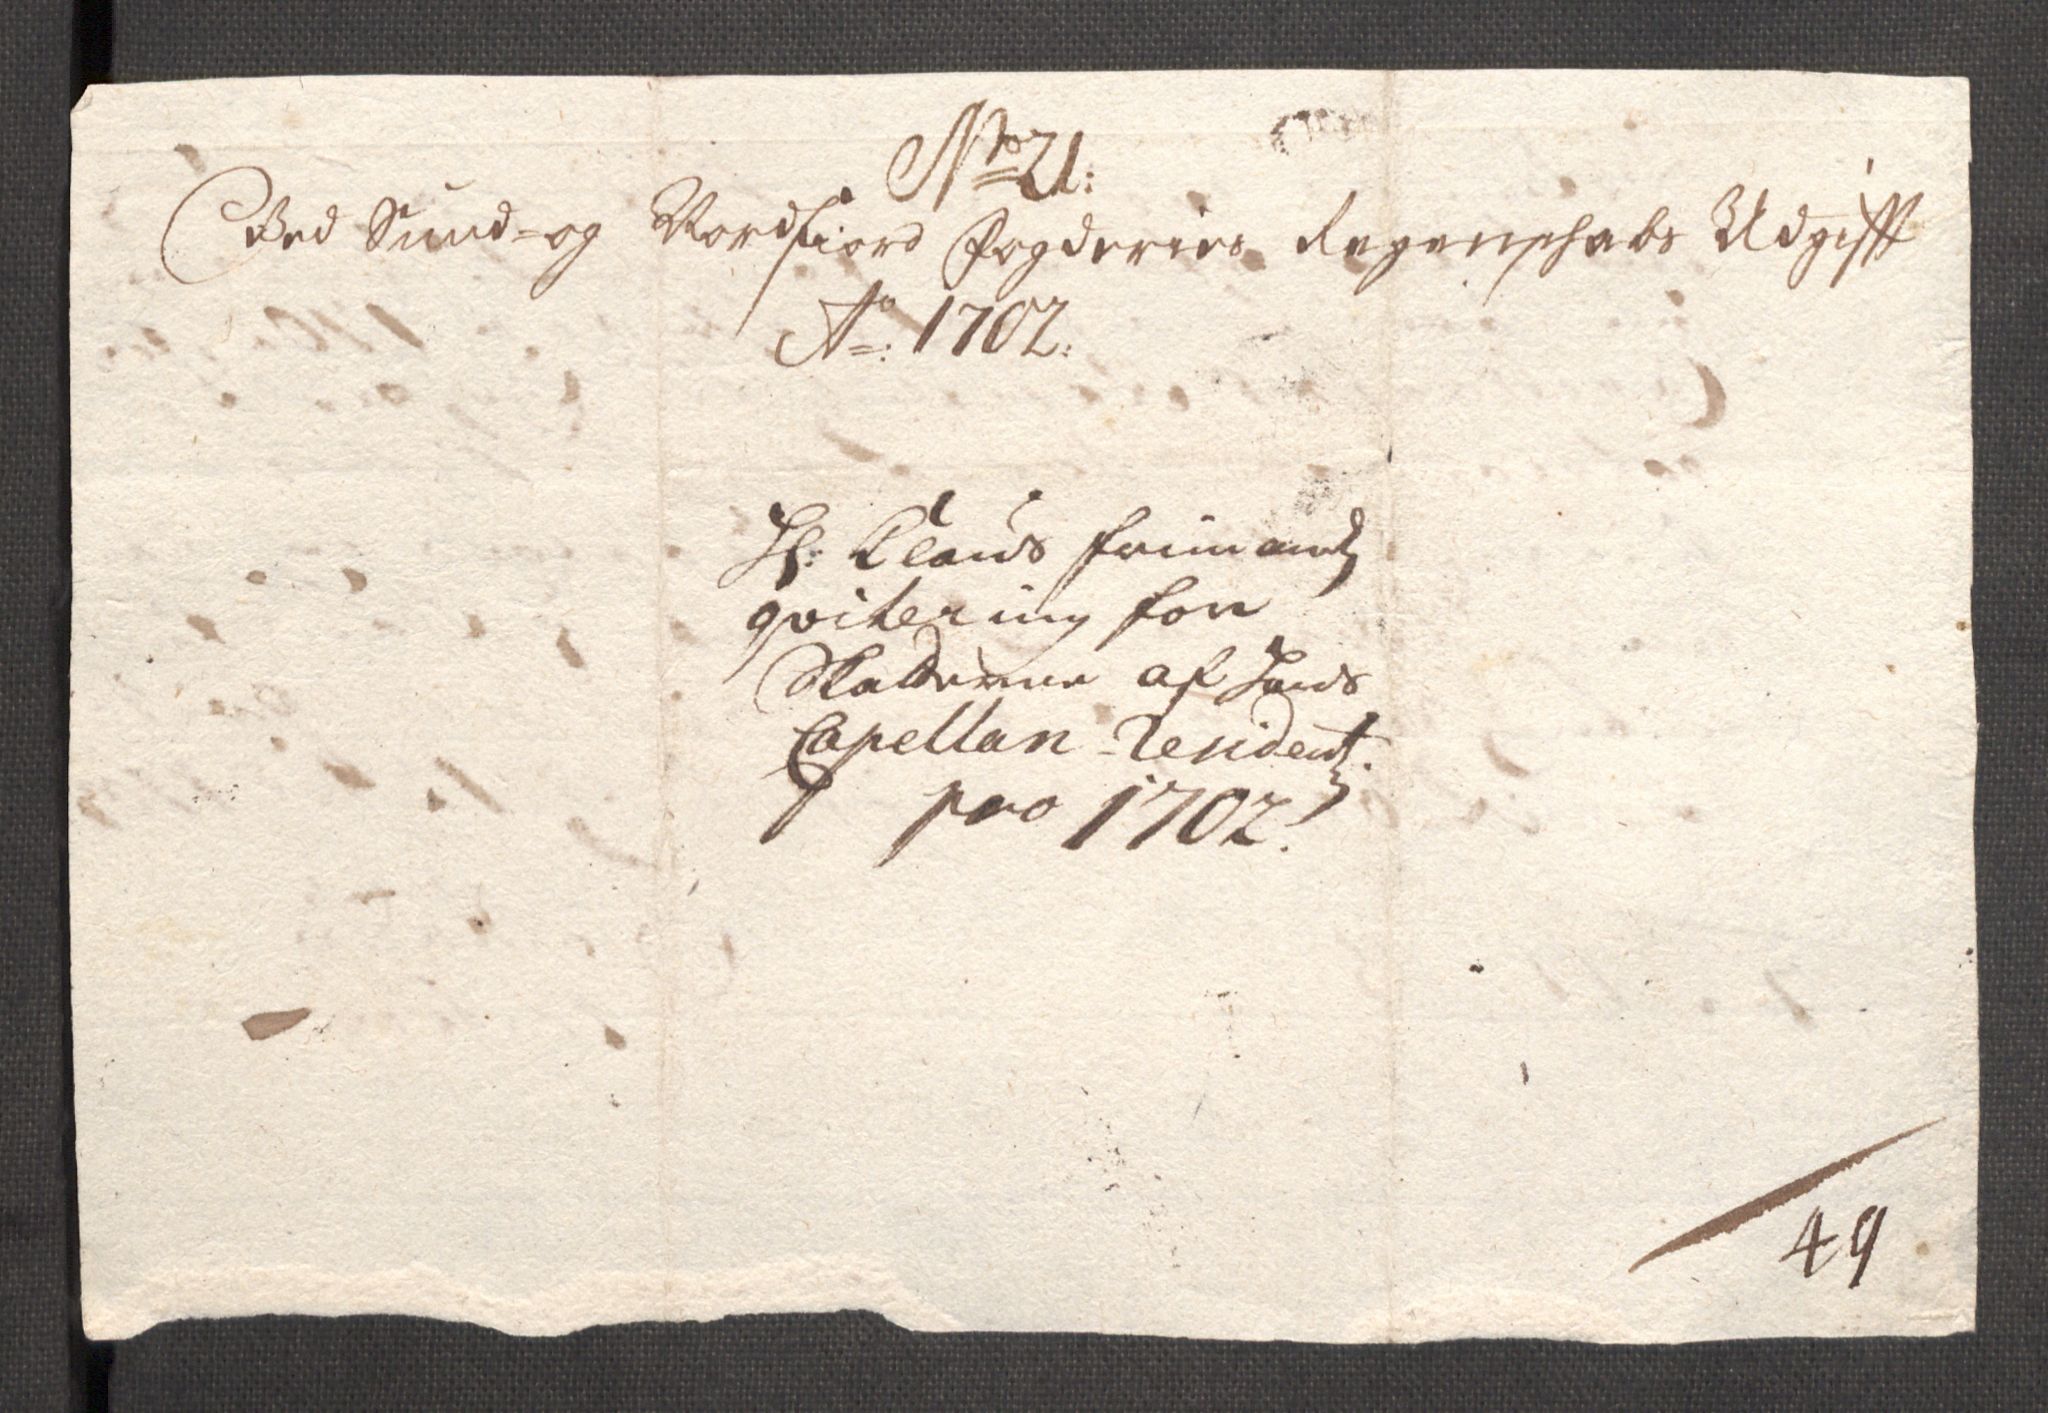 No 21:
Ved Sund- og Nordfiord Fogderies Regenschabs Udgifft
Ao: 1702:
Hr: Claus frimandz
qvitering for
Skatterne af Hans
Capellan-Residentz.
pro 1702.
49